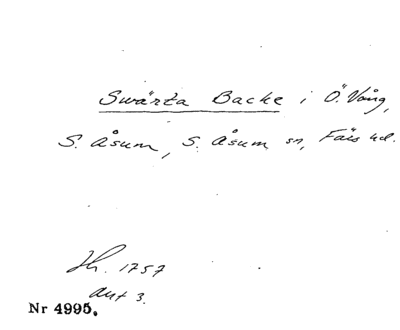 Swärta Backe i Ö. Vång,
S. Åsum, S. Åsum sn, Färs hd.
Jh. 1757
akt 3.
Nr 4995.